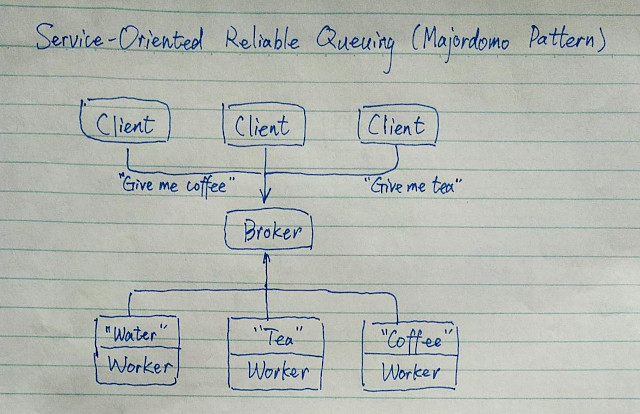 Service-Oriented Reliable Queuing (Majordomo Pattern)
Client Client Client
"Give me coffee" "Give me tea"
Broker
"Water" "Tea" "Coffee"
Worker Worker Worker